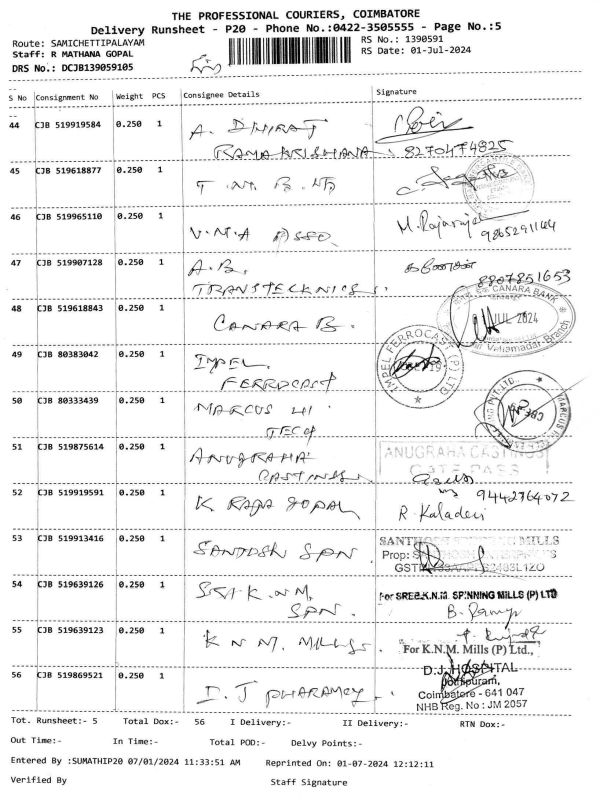 THE PROFESSIONAL COURIERS, COIMBATORE
Delivery Runsheet - P20 - Phone No.:0422-3505555 - Page No.:5
Route: SAMICHETTIPALAYAM
RS No.: 1390591
Staff: R MATHANA GOPAL
RS Date: 01-Jul-2024
DRS No.: DCJB139059105
S No Consignment No Weight PCS Consignee Details Signature
44 CJB 519919584 0.250 1 A. DHIRAJ
RAMAKRISHANA. 8270474825
45 CJB 519618877 0.250 1 T.N.B.
46 CJB 519965110 0.250 1 V.M.A ASSO. M. Rajarajal
9865291164
47 CJB 519907128 0.250 1 A.B. கணேசன்
TRANSTECKNICS. 8807851653
48 CJB 519618843 0.250 1 CANARA B. CANARA BANK
JUL 2024
Branch
49 CJB 80383042 0.250 1 IMPEL IMPEL FERROCAST (P) LTD
FERROCAST
50 CJB 80333439 0.250 1 MARCUS HI
TECH
51 CJB 519875614 0.250 1 ANUGRAHA ANUGRAHA CASTINGS
CASTINGS GATE PASS
52 CJB 519919591 0.250 1 K RAJA GOPAL 9442764072
R. Kaladevi
53 CJB 519913416 0.250 1 SANTOSH SPN MILLS
Prop:
54 CJB 519639126 0.250 1 SRI.K.N.M. For SREE.K.N.M. SPINNING MILLS (P) LTD
SPN.
55 CJB 519639123 0.250 1 K N M. MILLS.
For K.N.M. Mills (P) Ltd.,
56 CJB 519869521 0.250 1 D.J PHARAMCY. D.J. HOSPITAL
Coimbatore - 641 047
NHB Reg. No : JM 2057
Tot. Runsheet:- 5 Total Dox:- 56 I Delivery:- II Delivery:- RTN Dox:-
Out Time:- In Time:- Total POD:- Delvy Points:-
Entered By :SUMATHIP20 07/01/2024 11:33:51 AM Reprinted On: 01-07-2024 12:12:11
Verified By Staff Signature